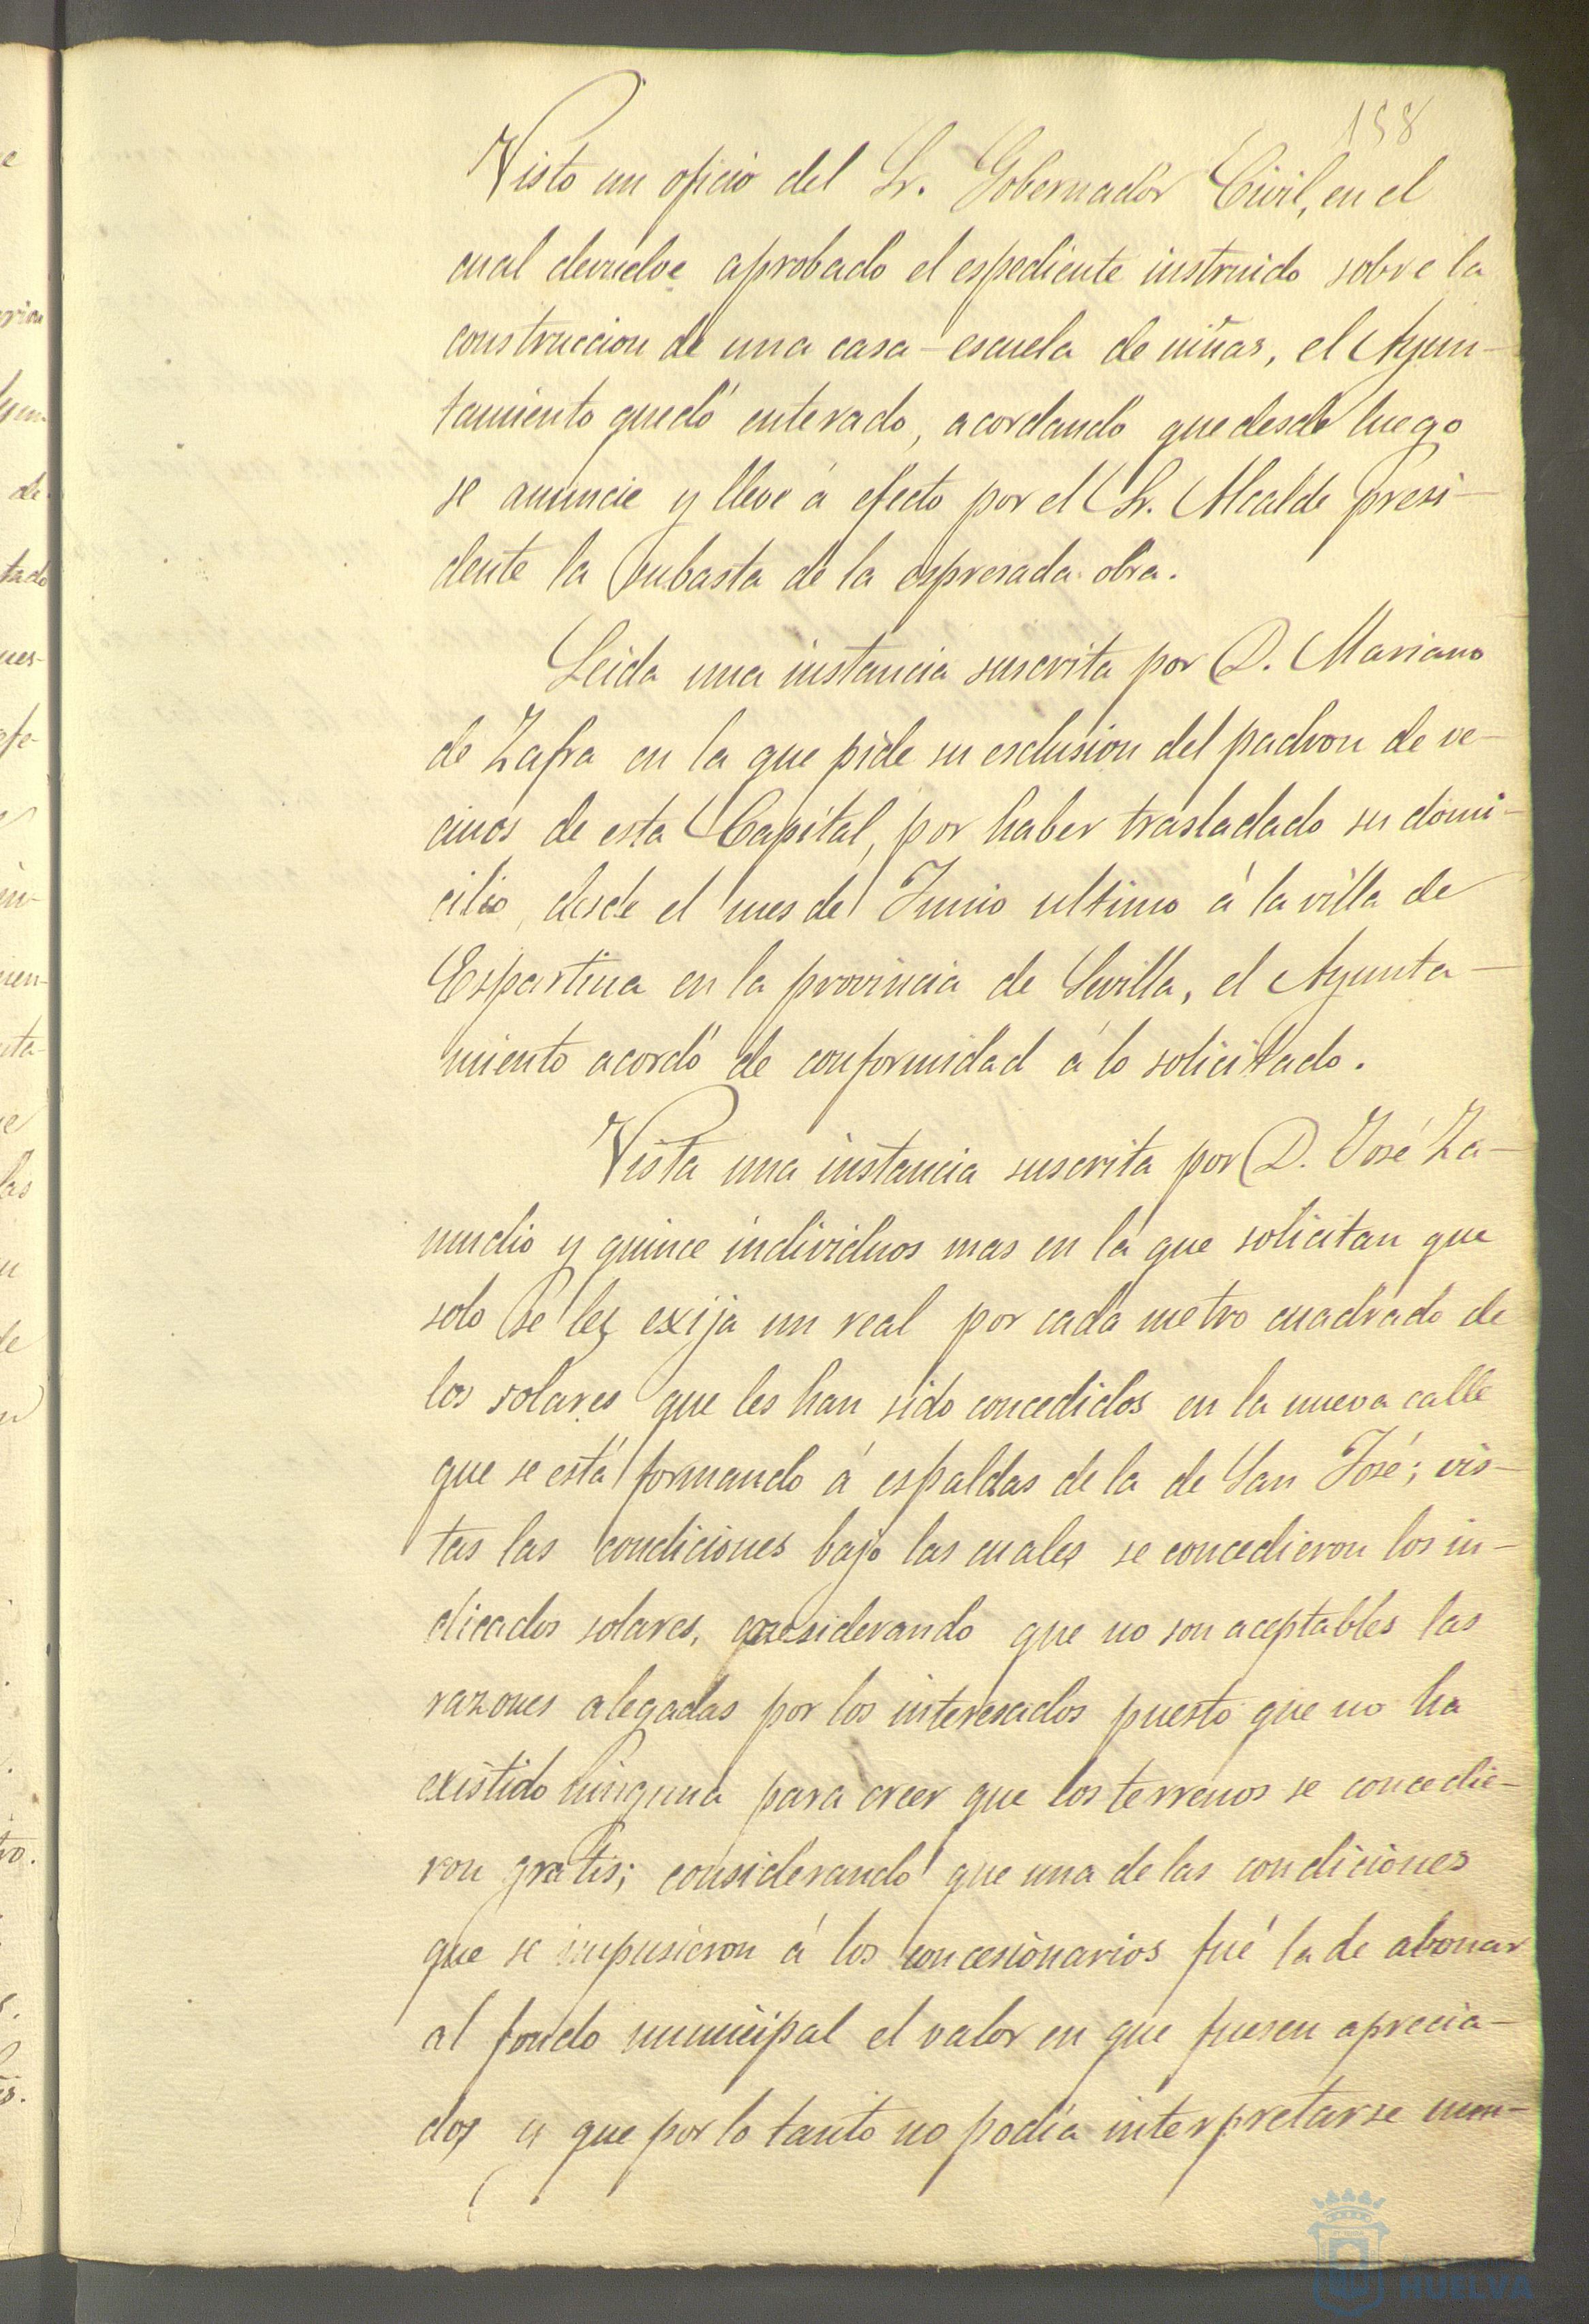 158
Visto un oficio del Sr. Gobernador Civil, en el
cual devuelve aprobado el espediente instruido sobre la
construccion de una casa-escuela de niñas, el Ayun-
tamiento quedó enterado, acordando que desde luego
se anuncie y lleve á efecto por el Sr. Alcalde presi-
dente la subasta de la espresada obra.
Leida una instancia suscrita por D. Mariano
de Zafra en la que pide su esclusion del padron de ve-
cinos de esta Capital, por haber trasladado su domi-
cilio, desde el mes de Junio ultimo á la villa de
Espartina en la provincia de Sevilla, el Ayunta-
miento acordó de conformidad á lo solicitado.
Vista una instancia suscrita por D. José Za-
mudio y quince individuos mas en la que solicitan que
solo se les exija un real por cada metro cuadrado de
los solares que les han sido concedidos en la nueva calle
que se está formando á espaldas de la de San José; vis-
tas las condiciones bajo las cuales se concedieron los in-
dicados solares, considerando que no son aceptables las
razones alegadas por los interesados puesto que no ha
existido ninguna para creer que los terrenos se concedie-
ron gratis; considerando que una de las condiciones
que se impusieron á los concesionarios fué la de abonar
al fondo municipal el valor en que fuesen aprecia-
dos y que por lo tanto no podía interpretarse nun-
HUELVA